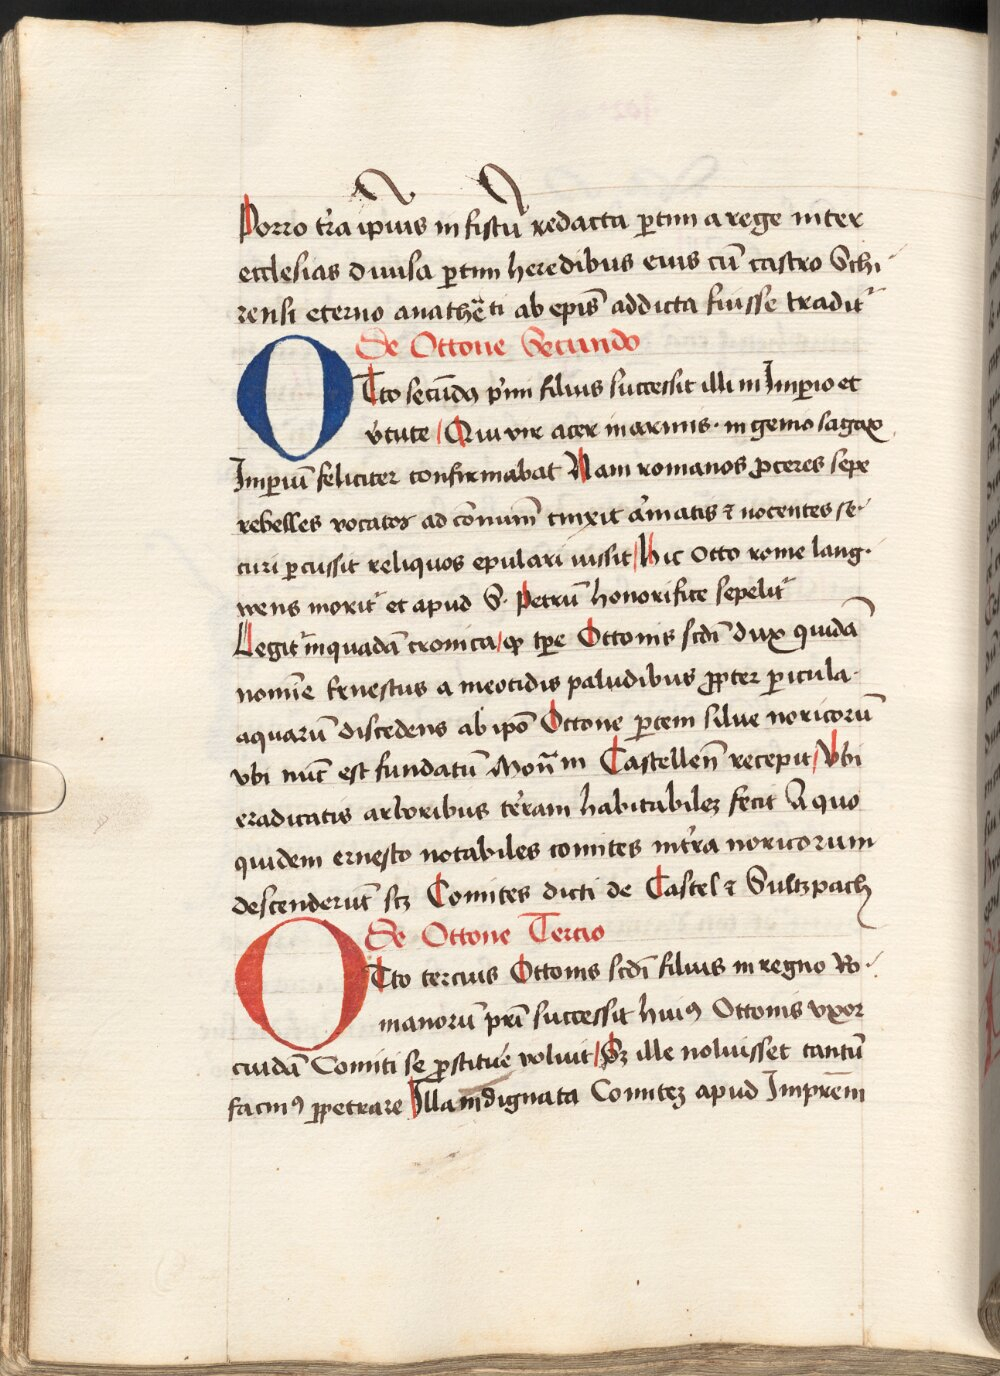 Porro tr̃a ipius in fiscũ redacta ꝑtim a rege inter
ecclesias diuisa ꝑtim heredibus eius cũ castro Schi
rensi eterno anathẽti ab epĩs addicta fuisse tradit᷑
De Ottone Secundo
Otto secũdꝯ p̃mi filius successit illi in Imꝑio et
v̓tute Qui vir acer in armis· in genio sagax
Imꝑiũ feliciter confirmabat Nam romanos ꝓceres sepe
rebelles vocatos ad cõniuiũ cinxit ar̃matis ⁊ nocentes se-
curi ꝑcussit reliquos epulari iussit hic Otto rome lang·
wens morit᷑ et apud S· Petrũ honorifice sepelit᷑
Legit᷑ in quadã cronica ꝙ tꝑe Ottonis scďi dux quidã
nomĩe Ernestus a meotidis paludibus ꝓpter ꝑicula
aquarũ discedens ab ip̃o Ottone ꝑtem silue noricorũ
vbi nũc est fundatũ Moñm Castelleñ recepit Vbi
eradicatis arboribus ter̃am habitabileꝫ fecit A quo
quidem ernesto notabiles comites in tr̃a noricorum
descenderũt scꝫ Comites dicti de Castel ⁊ Sultzpach
De Ottone Tercio
Otto tercius Ottonis scďi filius in regno Ro-
manorũ pr̃i successit huiꝯ Ottonis vxor
cuidã Comiti se ꝓstitue᷑ voluit Sꝫ ille noluisset tantũ
facinꝯ ꝑpetrare Illa indignata Comiteꝫ apud Impr̃em